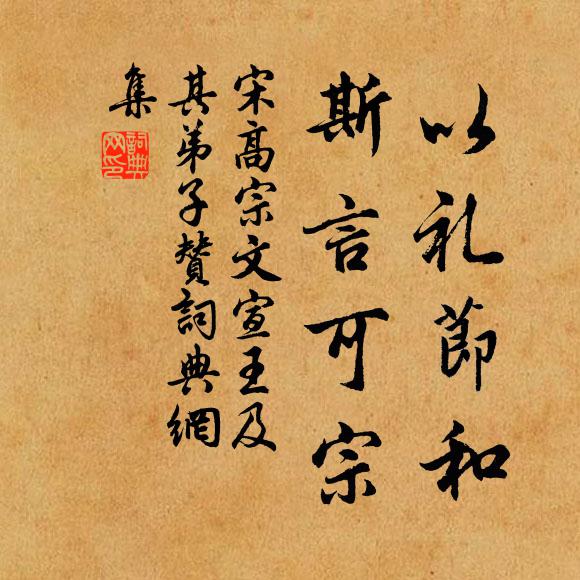 以礼節和
斯言可宗
宋高宗文宣王及
其弟子赞詞典網
集
詞典
网印